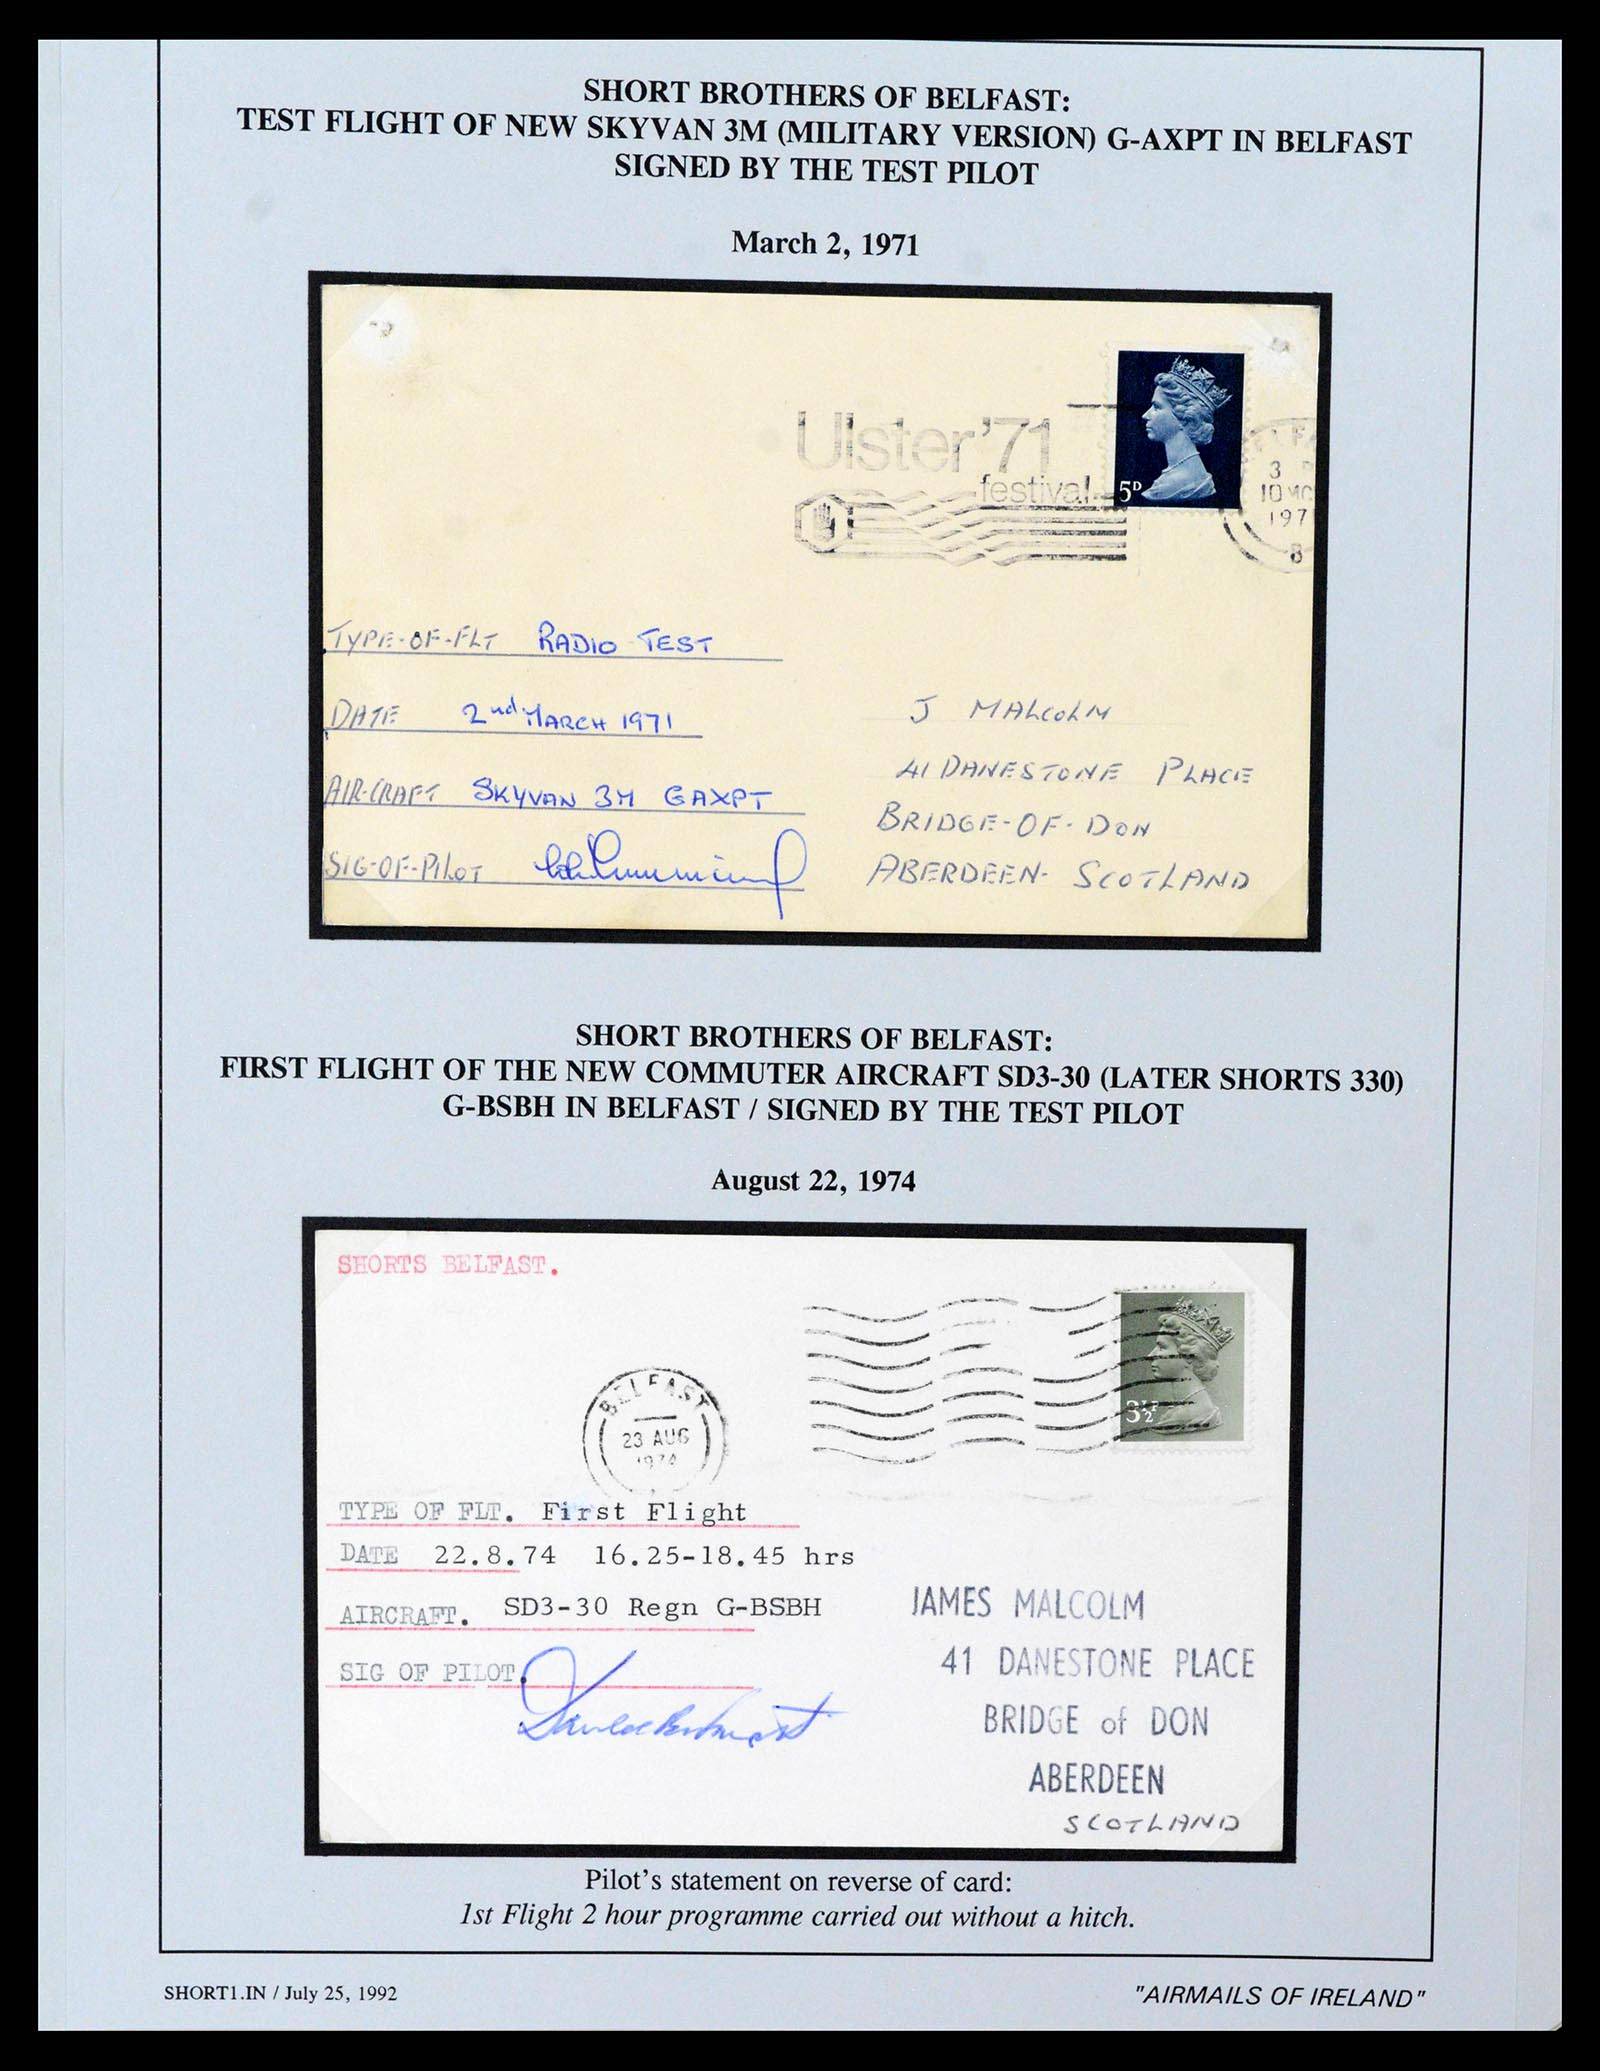 SHORT BROTHERS OF BELFAST:
TEST FLIGHT OF NEW SKYVAN 3M (MILITARY VERSION) G-AXPT IN BELFAST
SIGNED BY THE TEST PILOT
March 2, 1971
Ulster '71
festival
5D
3
10 MC
197
8
TYPE-OF-FLT RADIO TEST
DATE 2nd MARCH 1971
AIR-CRAFT SKYVAN 3M GAXPT
SIG-OF-PILOT
J MALCOLM
41 DANESTONE PLACE
BRIDGE-OF-DON
ABERDEEN- SCOTLAND
SHORT BROTHERS OF BELFAST:
FIRST FLIGHT OF THE NEW COMMUTER AIRCRAFT SD3-30 (LATER SHORTS 330)
G-BSBH IN BELFAST / SIGNED BY THE TEST PILOT
August 22, 1974
SHORTS BELFAST.
3½P
BELFAST
23 AUG
1974
TYPE OF FLT. First Flight
DATE 22.8.74 16.25-18.45 hrs
AIRCRAFT. SD3-30 Regn G-BSBH
SIG OF PILOT.
JAMES MALCOLM
41 DANESTONE PLACE
BRIDGE of DON
ABERDEEN
SCOTLAND
Pilot's statement on reverse of card:
1st Flight 2 hour programme carried out without a hitch.
SHORT1.IN / July 25, 1992
"AIRMAILS OF IRELAND"